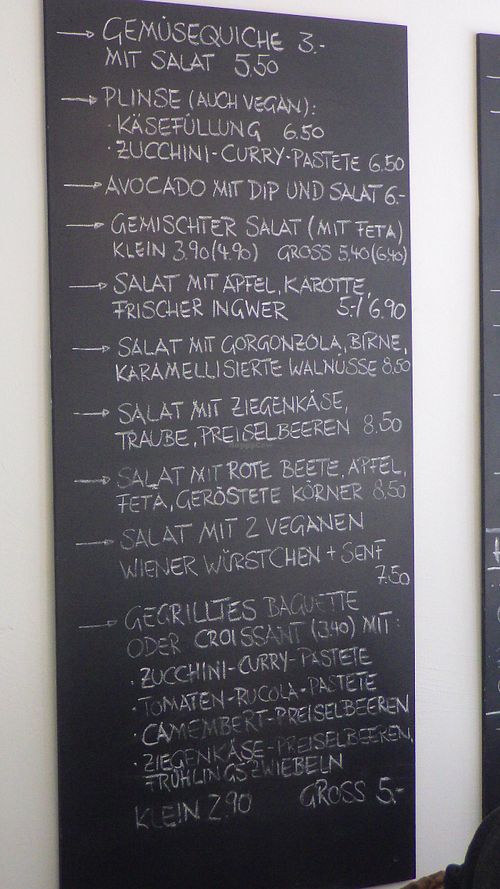 → GEMÜSEQUICHE 3.-
MIT SALAT 5.50
→ PLINSE (AUCH VEGAN):
· KÄSEFÜLLUNG 6.50
· ZUCCHINI-CURRY-PASTETE 6.50
→ AVOCADO MIT DIP UND SALAT 6.-
→ GEMISCHTER SALAT (MIT FETA)
KLEIN 3.90 (4.90) GROSS 5.40 (6.40)
→ SALAT MIT ÄPFEL, KAROTTE,
FRISCHER INGWER 5.-/6.90
→ SALAT MIT GORGONZOLA, BIRNE,
KARAMELLISIERTE WALNÜSSE 8.50
→ SALAT MIT ZIEGENKÄSE,
TRAUBE, PREISELBEEREN 8.50
→ SALAT MIT ROTE BEETE, ÄPFEL,
FETA, GERÖSTETE KÖRNER 8.50
→ SALAT MIT 2 VEGANEN
WIENER WÜRSTCHEN + SENF
7.50
→ GEGRILLTES BAGUETTE
ODER CROISSANT (3.40) MIT:
· ZUCCHINI-CURRY-PASTETE
· TOMATEN-RUCOLA-PASTETE
· CAMEMBERT-PREISELBEEREN
· ZIEGENKÄSE-PREISELBEEREN,
FRÜHLINGSZWIEBELN
KLEIN 2.90 GROSS 5.-